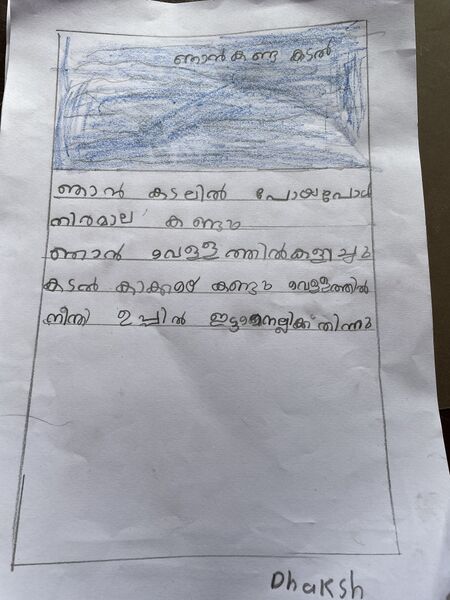 ഞാൻ കണ്ട കടൽ
ഞാൻ കടലിൽ പോയപോൾ
തിരമാല കണ്ടു
ഞാൻ വെള്ളത്തിൽ കളിച്ചു
കടൽ കാക്കയെ കണ്ടു വെള്ളത്തിൽ
നീന്തി ഉപ്പിൽ ഇട്ട നെല്ലിക്ക തിന്നു
Dhaksh